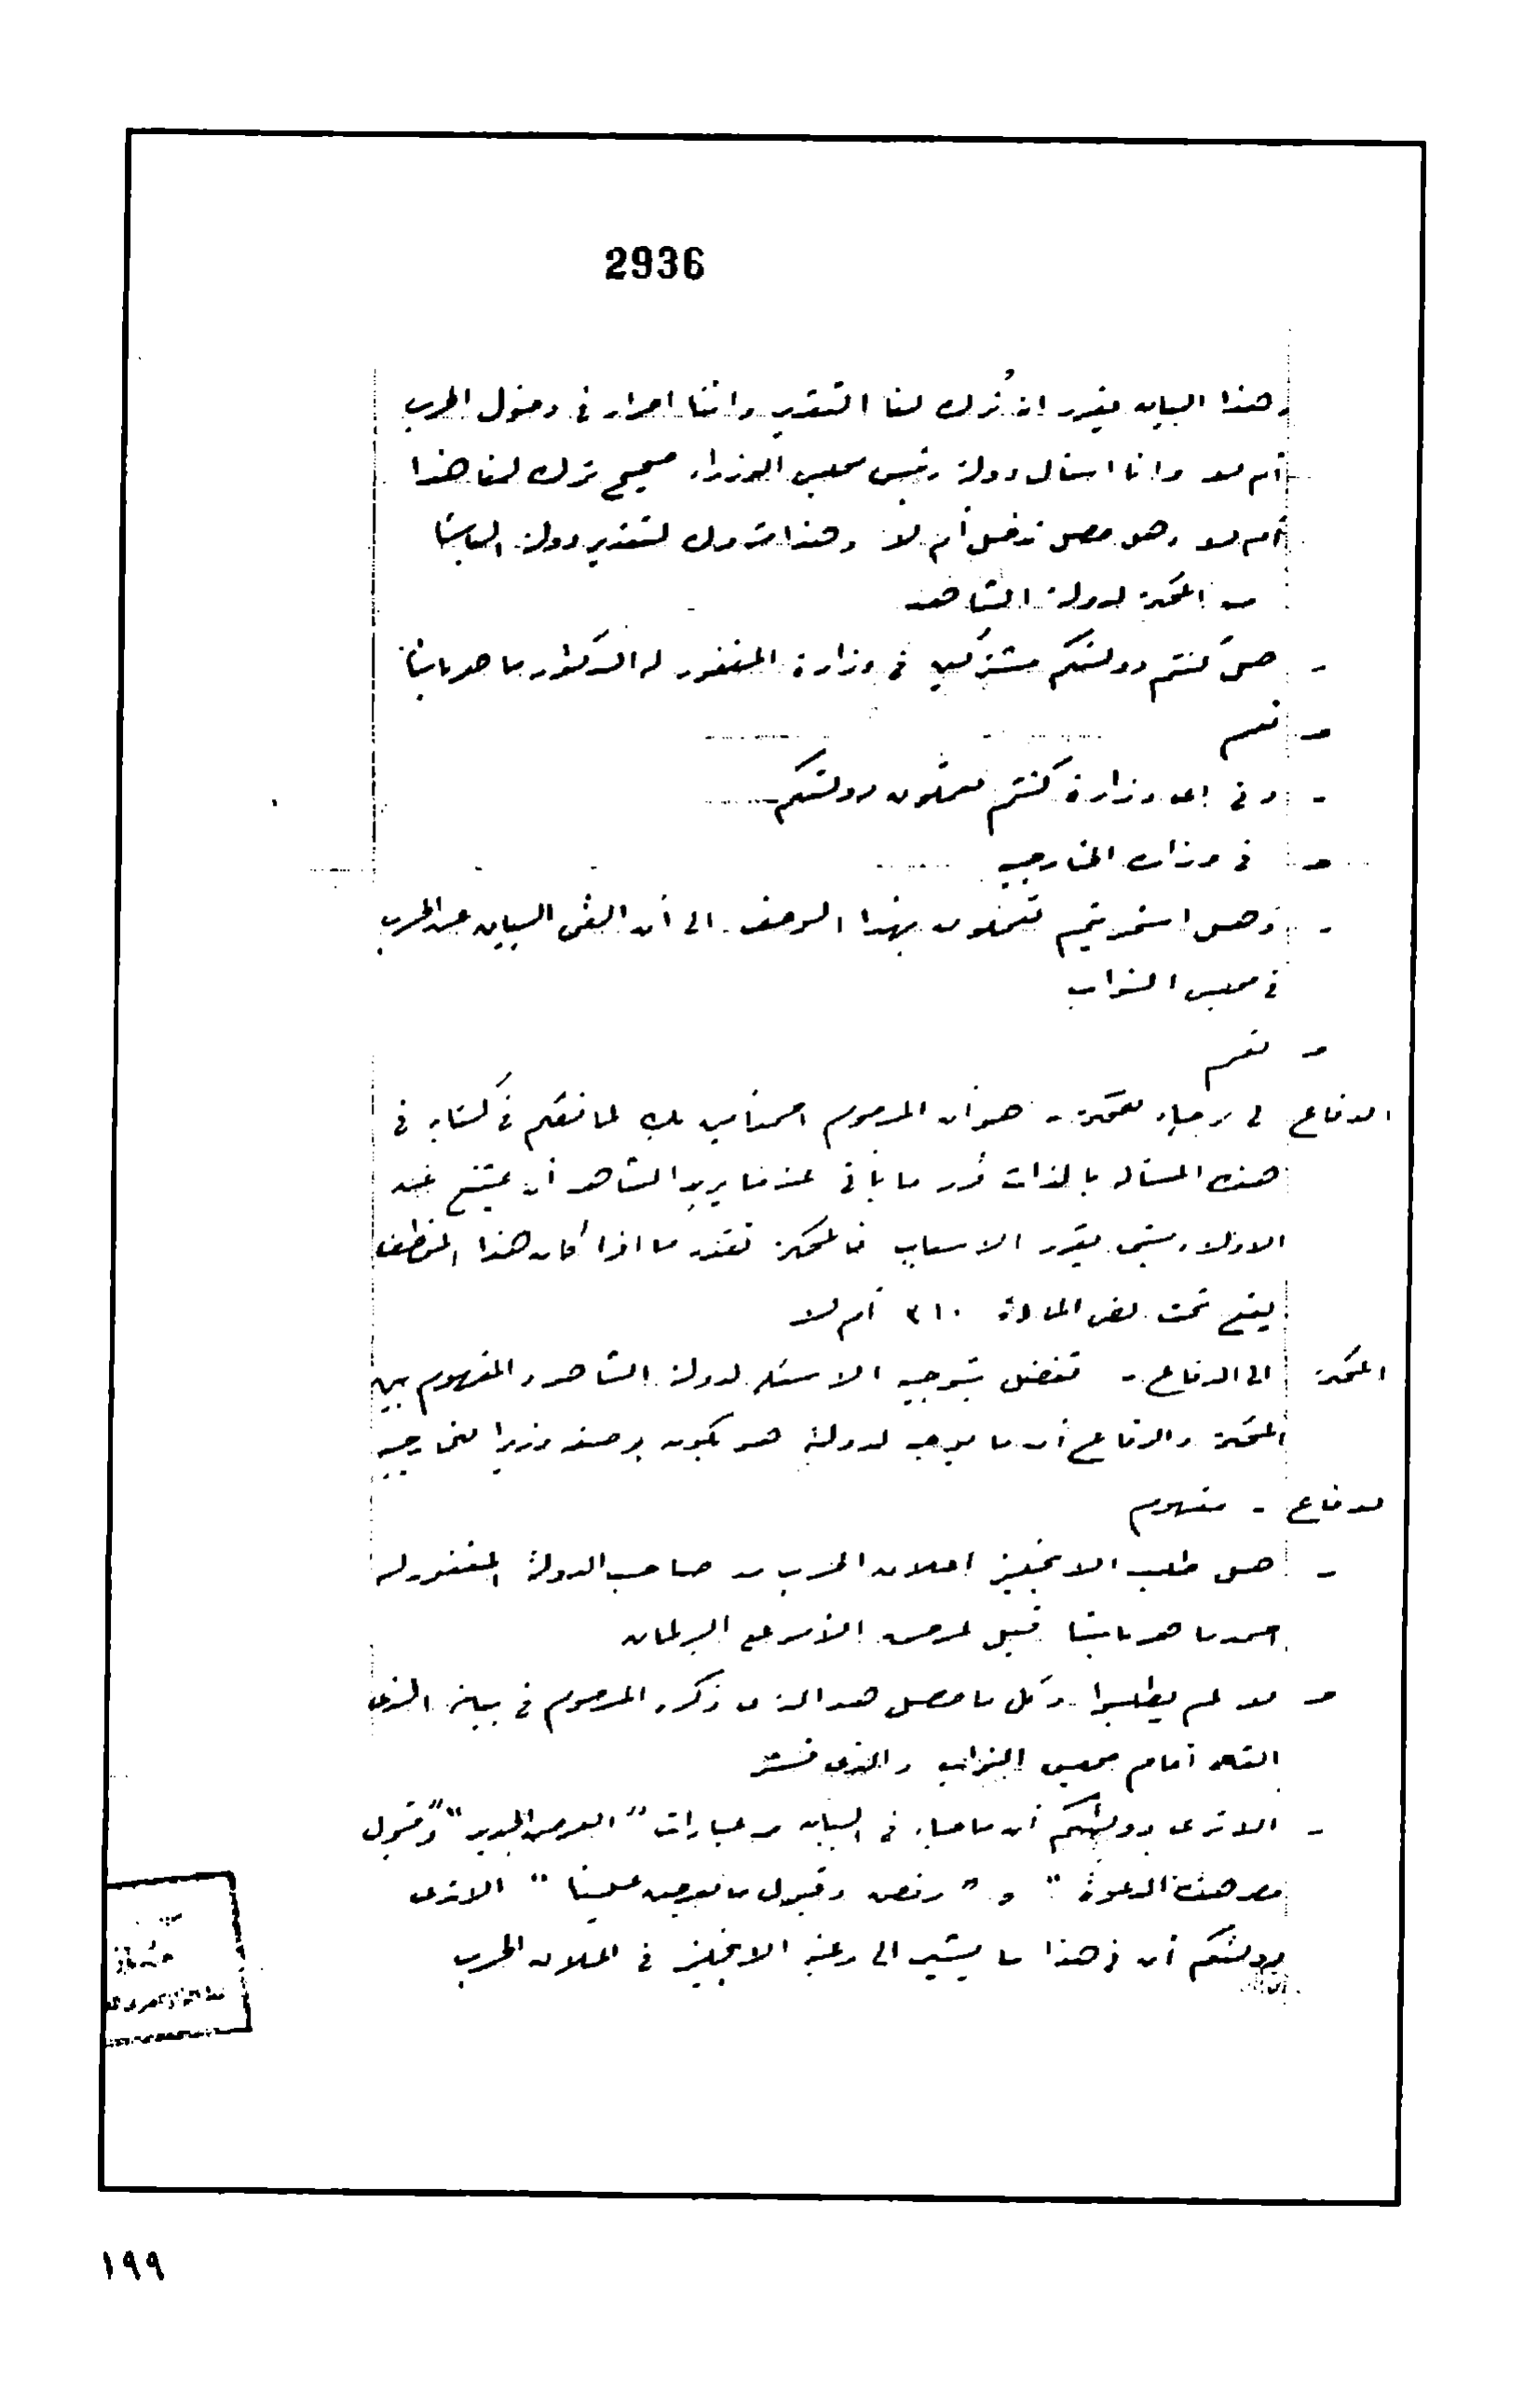 2936
وهذا البيان يقرر انه تُرك لنا التقدير واننا احرار فى دخول الحرب
أم لا وانا اسأل دولة رئيس مجلس الوزراء صحيح ترك لنا هذا
أم لا وهل مصر تدخل أم لا وهذا متروك لتقدير دولة الباشا
المحكمة لدولة الشاهد
- هل كنتم دولتكم مشتركين فى وزارة المغفور له الدكتور ماهر باشا
ج نعم
- وفى اى وزارة كنتم تعملون دولتكم
ج فى وزارة الخارجية
- وهل استمريتم تعملون بهذا الوصف الى أن القى البيان عن الحرب
فى مجلس النواب
ج نعم
الدفاع لى رجاء للمحكمة - هو أن المرحوم احمد أمين بك لما تكلم فى كتابه فى
هذه المسألة بالذات قرر ما يأتى عندما يريد الشاهد أن يمتنع عند
الادلاء متى يقرر الاسباب فالمحكمة تقدر ما اذا كان هذا الموظف
يقع تحت نص المادة ٣١٠ أم لا
المحكمة الى الدفاع - تفضل بتوجيه الاسئلة لدولة الشاهد والمفهوم بين
المحكمة والدفاع أن ما يوجه لدولته هو يكون بوصفه وزيرا للخارجية
الدفاع - مفهوم
- هل طلب الانجليز اعلان الحرب من صاحب الدولة المغفور له
احمد ماهر باشا قبل عرض الأمر على البرلمان
ج لا لم يطلبوا وكل ما حصل هو الذى ذكره المرحوم فى بيانه الذى
القاه أمام مجلس النواب والذى نشر
- الا ترى دولتكم أن ما جاء فى البيان من عبارات "العرض الجديد" و"قبول
مصر هذه الدعوة" و "رفض وقبول ما يعرض علينا" الا ترى
دولتكم أن فى هذا ما يشير الى رغبة الانجليز فى اعلان الحرب
١٩٩